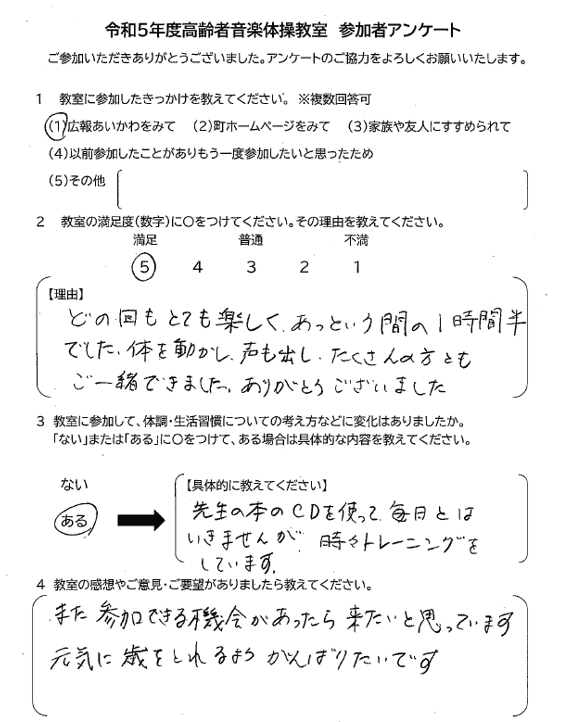 令和5年度高齢者音楽体操教室 参加者アンケート
ご参加いただきありがとうございました。アンケートのご協力をよろしくお願いいたします。
1 教室に参加したきっかけを教えてください。 ※複数回答可
(1)広報あいかわをみて (2)町ホームページをみて (3)家族や友人にすすめられて
(4)以前参加したことがありもう一度参加したいと思ったため
(5)その他
2 教室の満足度(数字)に〇をつけてください。その理由を教えてください。
満足 普通 不満
5 4 3 2 1
【理由】
どの回もとても楽しく、あっという間の1時間半
でした。体を動かし、声も出し、たくさんの方とも
ご一緒できました。ありがとうございました
3 教室に参加して、体調・生活習慣についての考え方などに変化はありましたか。
「ない」または「ある」に〇をつけて、ある場合は具体的な内容を教えてください。
ない
ある
【具体的に教えてください】
先生の本のCDを使って、毎日とは
いきませんが、時々トレーニングを
しています。
4 教室の感想やご意見・ご要望がありましたら教えてください。
また参加できる機会があったら来たいと思っています
元気に歳をとれるようがんばりたいです